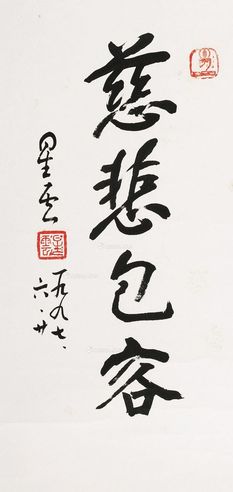 慈悲包容
星云
一九九七、
六、廿